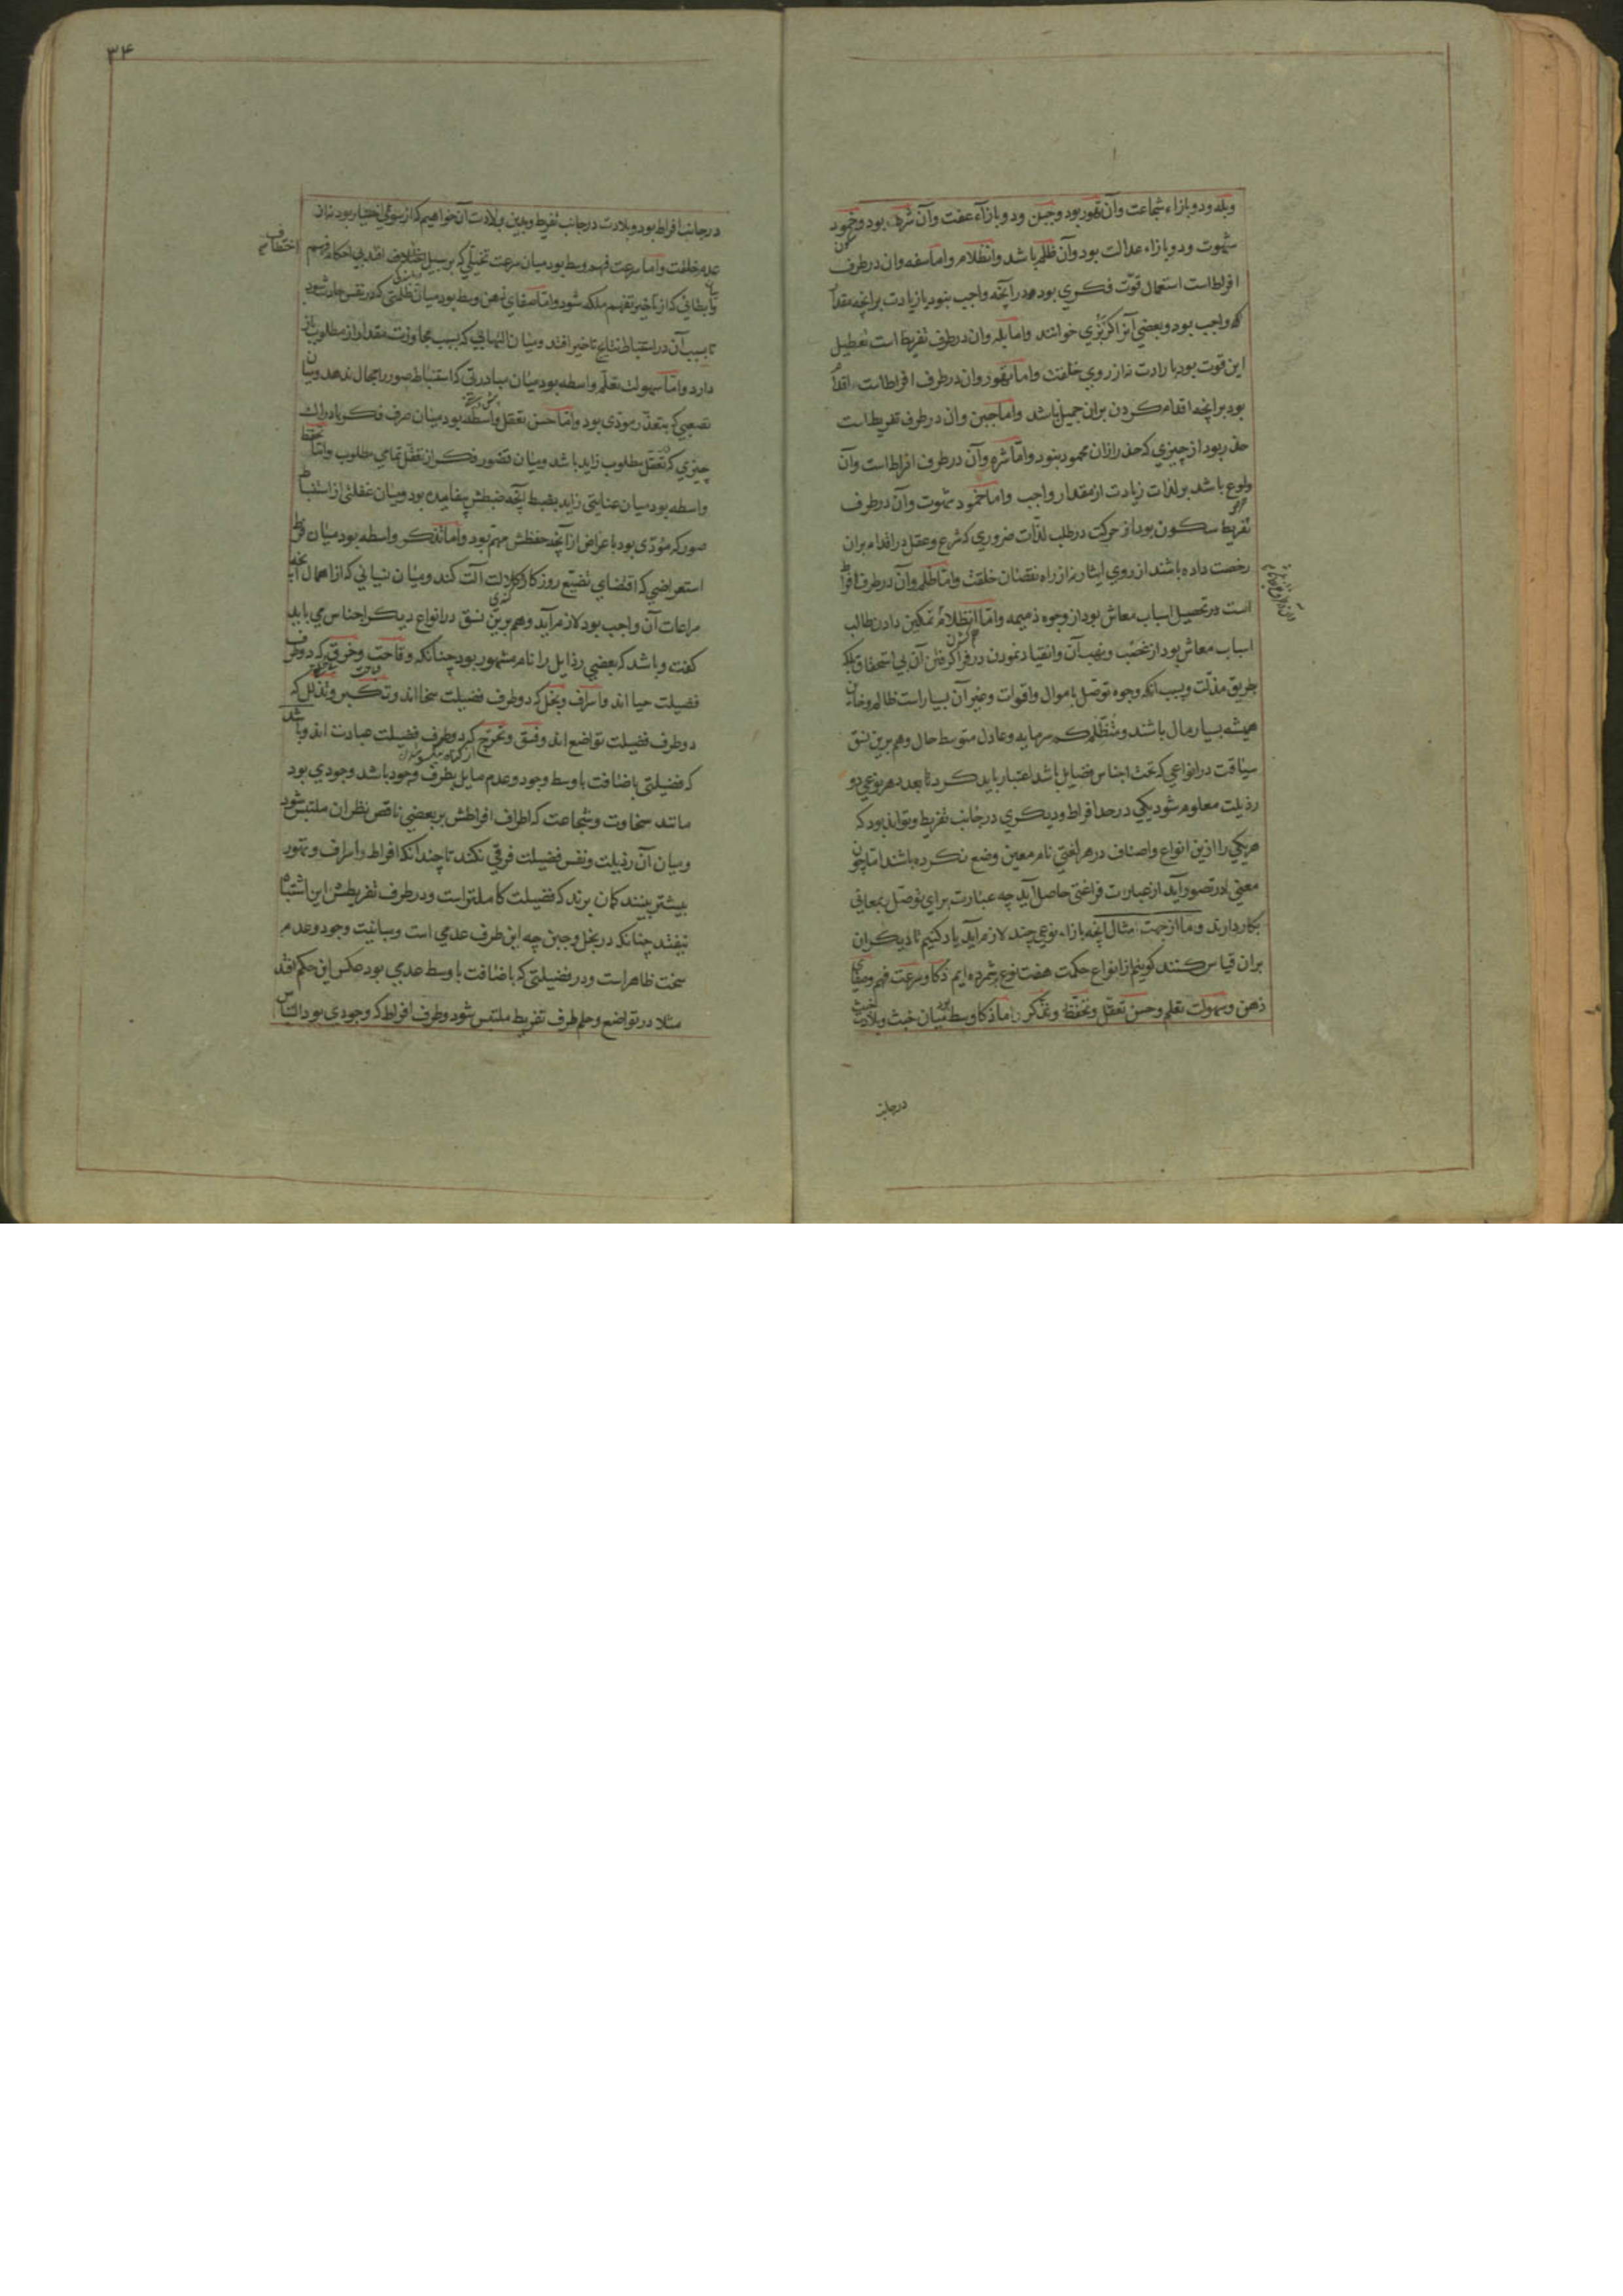 وبله ودو بازاء شجاعت وآن تهور بود وجبن ودو بازآء عفت وآن شره بود وخمود
شهوت ودو بازاء عدالت بود وآن ظلم باشد وانظلام واما سفه وان در طرف
افراط است استعمال قوّت فکری بود در آنچه واجب نبود یا زیادت بر آنچه مقدار
که واجب بود وبعضی آنرا کربزی خوانند واما بله وان در طرف تفریط است تعطیل
این قوت بود بارادت نه از روی خلقت واما تهور وان در طرف افراط است اقدام
بود بر آنچه اقدام کردن بران جمیل نباشد واما جبن وان در طرف تفریط است
حذر بود از چیزی که حذر ازان محمود نبود واما شره وآن در طرف افراط است وآن
ولوع باشد بر لذات زیادت از مقدار واجب واما خمود شهوت وآن در طرف
تفریط سکون بود از حرکت در طلب لذّات ضروری که شرع وعقل در اقدام بران
رخصت داده باشند از روی ایثار نه از راه نقصان خلقت واما ظلم وآن در طرف افراط
است در تحصیل اسباب معاش بود از وجوه ذمیمه واما انظلام تمکین دادن طالب
اسباب معاش بود از غصب ونهب آن وانقیاد نمودن در فرا گرفتن آن بی استحقاق بلکه
بطریق مذلّت وبسبب آنکه وجوه توصّل باموال واقوات وغیر آن بسیار است ظالم وخائن
همیشه بسیار مال باشند ومنظلم کم سرمایه وعادل متوسط حال وهم برین نسق
سیاقت در انواعی که تحت اجناس فضایل باشد اعتبار باید کرد تا بعدد هر نوعی دو
رذیلت معلوم شود یکی در حد افراط ودیکری در جانب تفریط وتواند بود که
هر یکی را ازین انواع واصناف در هر لغتی نام معین وضع نکرده باشند اما چون
معنی در تصور آید از عبارت فراغتی حاصل آید چه عبارت برای توصّل بمعانی
بکار دارند وما از جهت مثال آنچه بازاء نوعی چند لازم آید یاد کنیم تا دیکران
بران قیاس کنند کوییم از انواع حکمت هفت نوع بر شمرده ایم ذکا وسرعت فهم وصفای
ذهن وسهولت تعلم وحسن تعقّل وتحفّظ وتذکر اما ذکا وسط بود میان خبث وبلادت
درجانب
۳۴
در جانب افراط بود وبلادت در جانب تفریط وبدین بلادت آن خواهیم که از سوء اختیار بود نه از
عدم خلقت واما سرعت فهم وسط بود میان سرعت تخیلی که بر سبیل اختطاف افتد بی احکام فهم
وابطائی که از تاخیر تفهم ملکه شود واما صفای ذهن وسط بود میان ظلمتی که در نفس حادث شود
تا بسبب آن در استنباط نتایج تاخیر افتد ومیان التهابی که بسبب مجاوزت مقدار از مطلوب باز
دارد واما سهولت تعلّم واسطه بود میان مبادرتی که استنباط صور را مجال ندهد ومیان
تصعبی که بتعذّر مودّی بود واما حسن تعقل واسطه بود میان صرف فکر بادراک
چیزی که تعقّل مطلوب زاید باشد ومیان قصور فکر از تعقّل تمامی مطلوب واما تحفظ
واسطه بود میان عنایتی زاید بضبط آنچه ضبطش بیفایده بود ومیان غفلتی از استنباط
صور که مؤدّی بود باعراض از آنچه حفظش مهم بود واما تذکر واسطه بود میان فرط
استعراضی که اقتضای تضییع روزکار وکلالت آلت کند ومیان نسیانی که از اهمال آنچه
مراعات آن واجب بود لازم آید وهم برین نسق در انواع دیکر اجناس می باید
کفت وباشد که بعضی رذایل را نام مشهور بود چنانکه وقاحت وخرق که دو طرف
فضیلت حیا اند واسراف وبخل که دو طرف فضیلت سخا اند وتکبر وتذلل که
دو طرف فضیلت تواضع اند وفسق وتحرّج که دو طرف فضیلت عبادت اند وباشد
که فضیلتی باضافت با وسط وجود وعدم مایل بطرف وجود باشد وجودی بود
مانند سخاوت وشجاعت که اطراف افراطش بر بعضی ناقص نظران ملتبس شود
ومیان آن رذیلت ونفس فضیلت فرقی نکنند تا چندانکه افراط واسراف وتهور
بیشتر بینند کمان برند که فضیلت کاملتر است ودر طرف تفریطش این اشتباه
نیفتد چنانکه در بخل وجبن چه این طرف عدمی است ومباینت وجود وعدم
سخت ظاهر است ودر فضیلتی که باضافت با وسط عدمی بود عکس این حکم افتد
مثلا در تواضع وحلم طرف تفریط ملتبس شود وطرف افراط که وجودی بود التباس
اختطاف